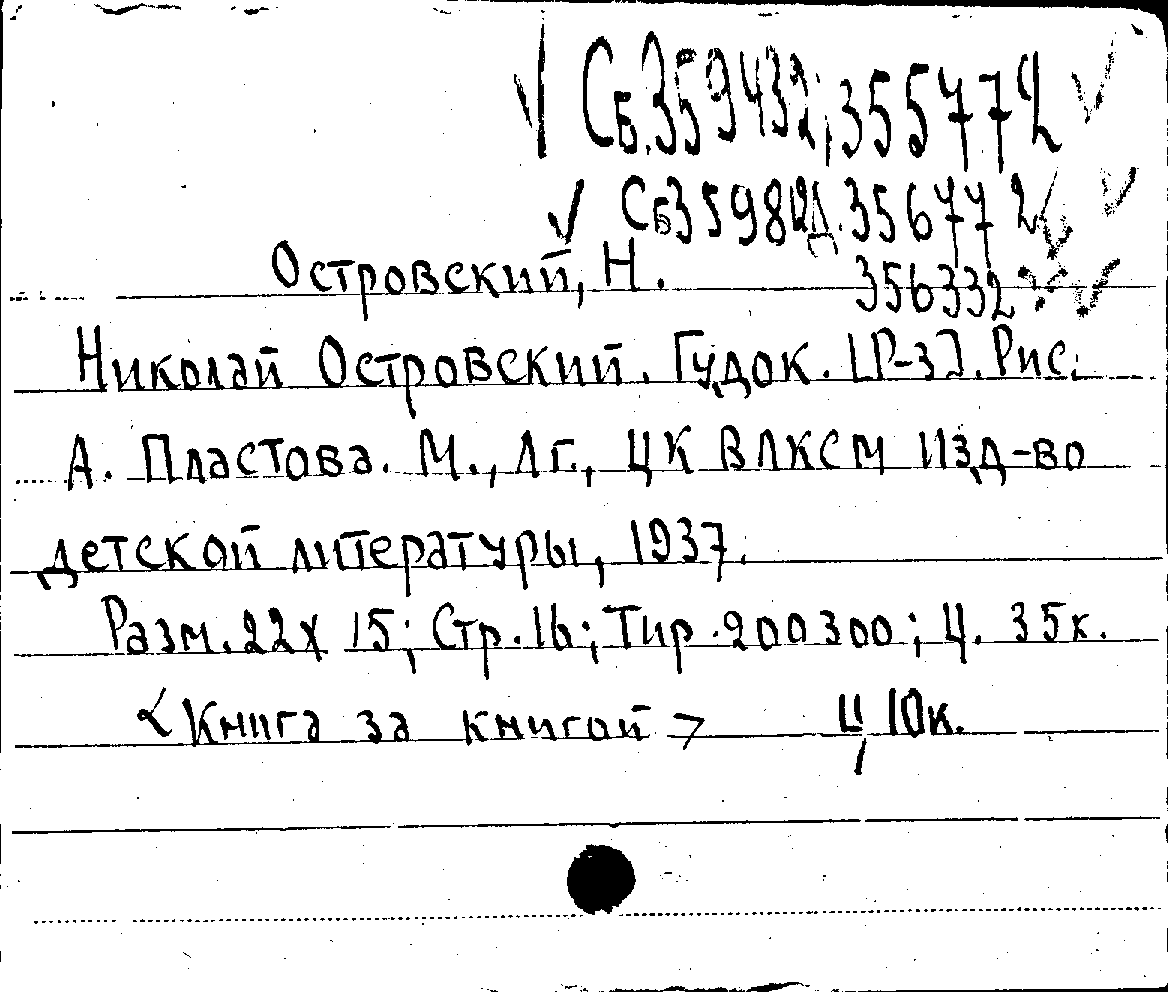 Сб.359432; 355772
Сб359812д. 356772
Островский, Н.
356332
Николай Островский. Гудок. [Р-з]. Рис.
А. Пластова. М., Лг., ЦК ВЛКСМ Изд-во
детской литературы, 1937.
Разм. 22х15; Стр. 16; Тир. 200300; Ц. 35к.
<Книга за книгой> Ц 10к.